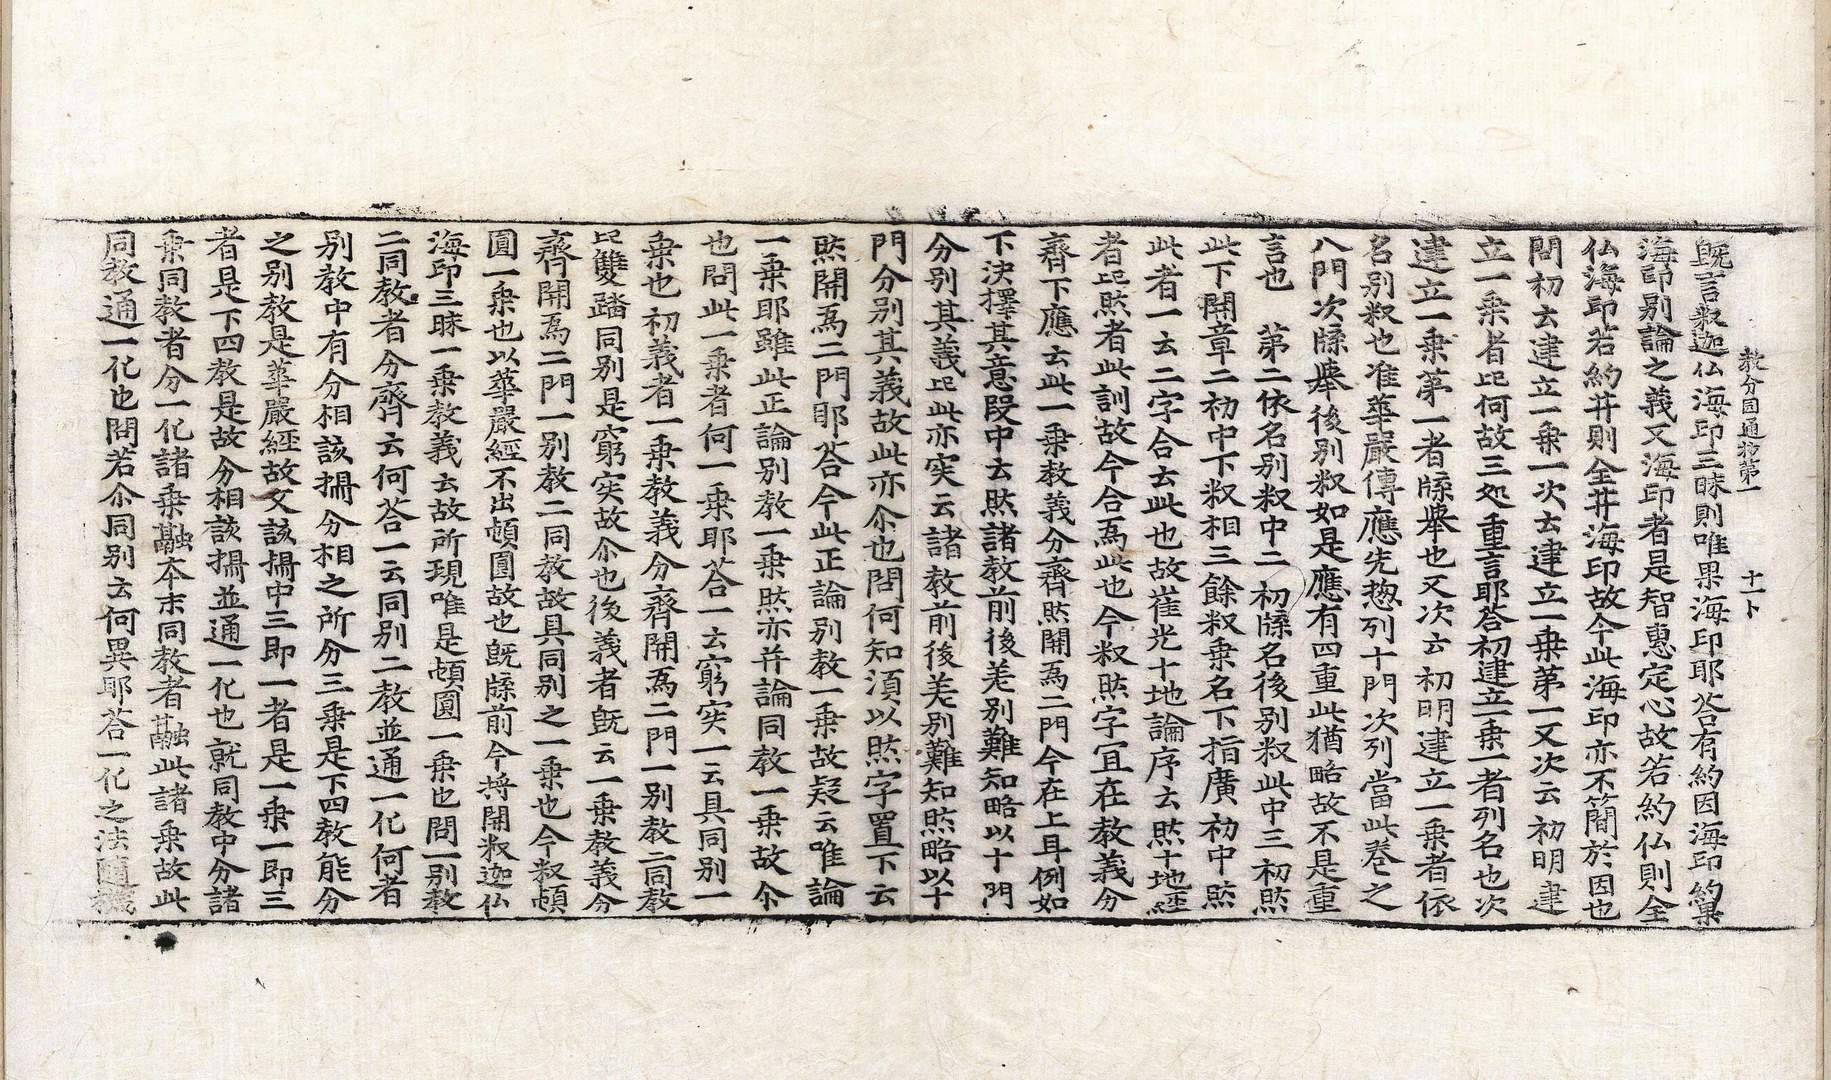 教分圓通抄第一　十一卜
旣言釈迦仏海印三昧則唯果海印耶荅有約因海印約果
海印別論之義又海印者是智惠定心故若約仏則全
仏海印若約菩則全菩海印故今此海印亦不簡於因也
問初云建立一乗一次云建立一乗第一又次云初明建
立一乗者此何故三処重言耶荅初建立一乗一者列名也次
建立一乗第一者牒舉也又次云初明建立一乗者依
名別釈也准華嚴傳應先惣列十門次列當此卷之
八門次牒舉後別釈如是應有四重此猶略故不是重
言也　第二依名別釈中二初牒名後別釈此中三初然
此下開章二初中下釈相三餘釈乗名下指廣初中然
此者一云二字合云此也故崔光十地論序云然十地經
者此然者此訓故今合爲此也今釈然字冝在教義分
齊下應云此一乗教義分齊然開爲二門今在上耳例如
下決擇其意段中云然諸教前後差別難知略以十門
分別其義此亦突云諸教前後差別難知然略以十
門分別其義故此亦尒也問何知湏以然字置下云
然開爲二門耶荅今此正論別教一乗故疑云唯論
一乗耶雖此正論別教一乗然亦并論同教一乗故尒
也問此一乗者何一乗耶荅一云窮突一云具同別一
乗也初義者一乗教義分齊開爲二門一別教二同教
此雙踏同別是窮突故尒也後義者旣云一乗教義分
齊開爲二門一別教二同教故具同別之一乗也今釈頓
圓一乗也以華嚴經不出頓圓故也旣牒前今將開釈迦仏
海印三昧一乗教義云故所現唯是頓圓一乗也問一別教
二同教者分齊云何荅一云同別二教並通一化何者
別教中有分相該攝分相之所分三乗是下四教能分
之別教是華嚴經故文該攝中三即一者是一乗一即三
者是下四教是故分相該攝並通一化也就同教中分諸
乗同教者分一化諸乗融本末同教者融此諸乗故此
同教通一化也問若尒同別云何異耶荅一化之法隨機